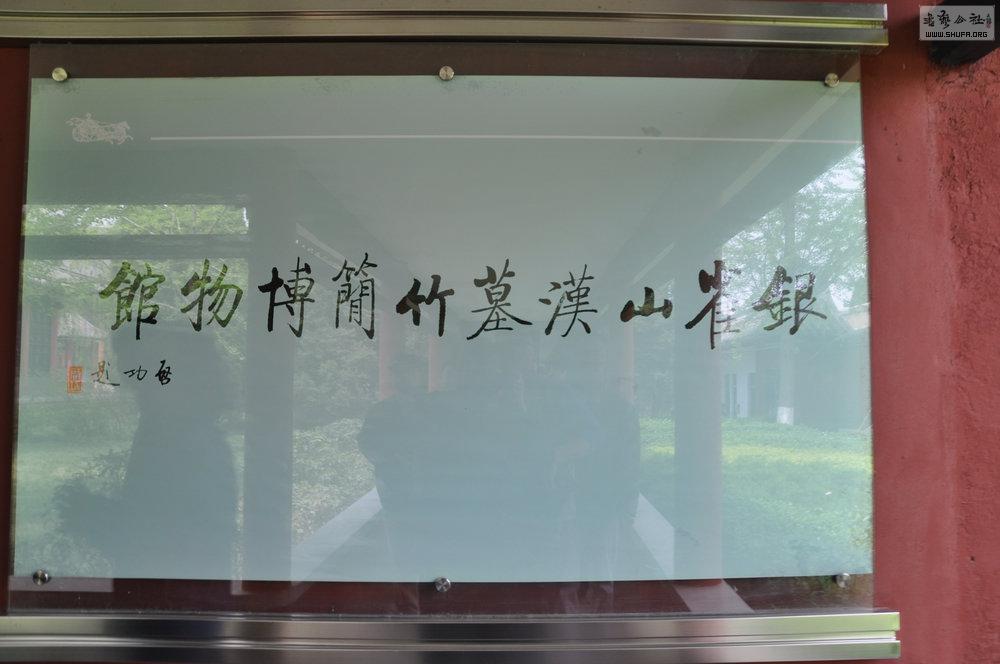 銀雀山漢墓竹簡博物館
啓功題
WWW.SHUFA.ORG